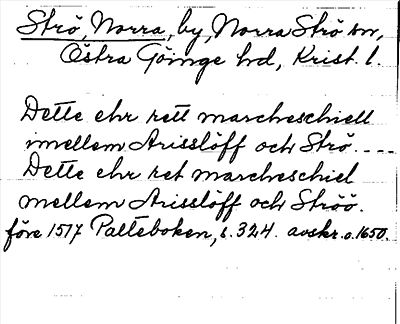 Strö, Norra, by, Norra Strö sn,
Östra Göinge hd, Krist. l.
Dette ehr rett marcheschiell
imellem Arisslöff och Strö. ----
Dette ehr ret marcheschiel
mellem Arisslöff och Ströö.
före 1517 Palteboken, s. 324. avskr. o. 1650.